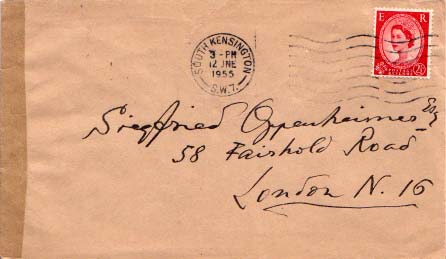 SOUTH KENSINGTON
3-PM
12 JNE
1955
S.W.7.
E R
POSTAGE REVENUE
2½
Siegfried Oppenheimer Esq
58 Fairhold Road
London N. 16